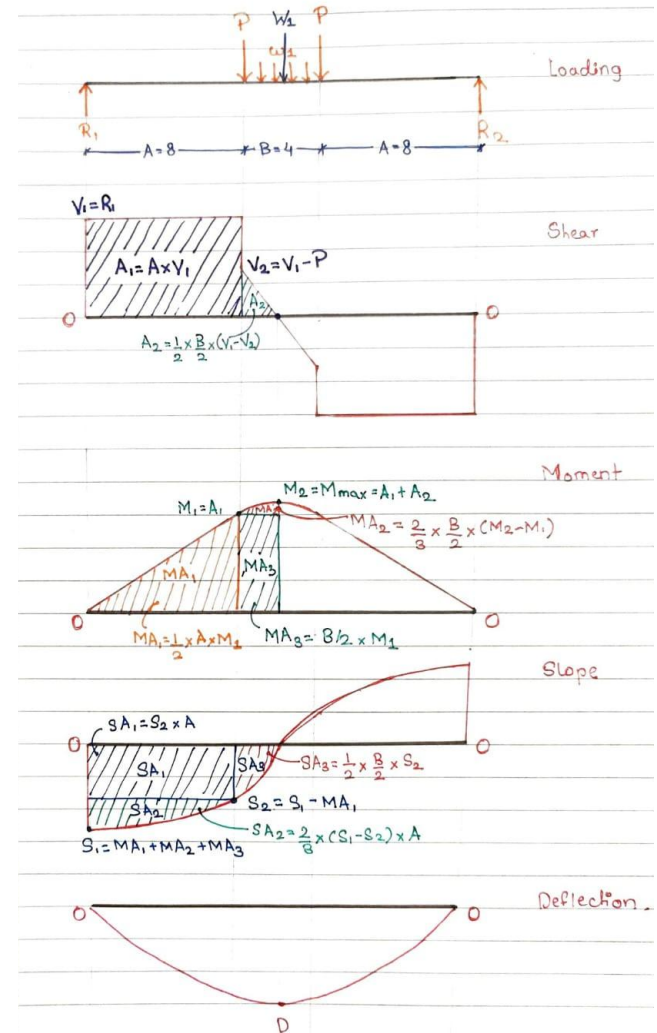 P W1 P
w1
Loading
R1 R2
A=8 B=4 A=8
V1=R1
Shear
A1=A×V1
V2=V1-P
A2
O O
A2=1/2×B/2×(V1-V2)
Moment
M2=Mmax=A1+A2
M1=A1
MA2
MA2=2/3×B/2×(M2-M1)
MA1
MA3
O O
MA1=1/2×A×M1
MA3=B/2×M1
Slope
SA1=S2×A
O O
SA1
SA3
SA3=1/2×B/2×S2
SA2
S2=S1-MA1
SA2=2/3×(S1-S2)×A
S1=MA1+MA2+MA3
O O
Deflection.
D